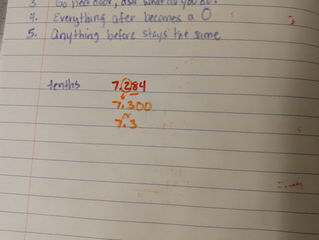 3 Go next door, ask what do you do?
4. Everything after becomes a 0
5. anything before stays the same
tenths 7.284
7.300
7.3